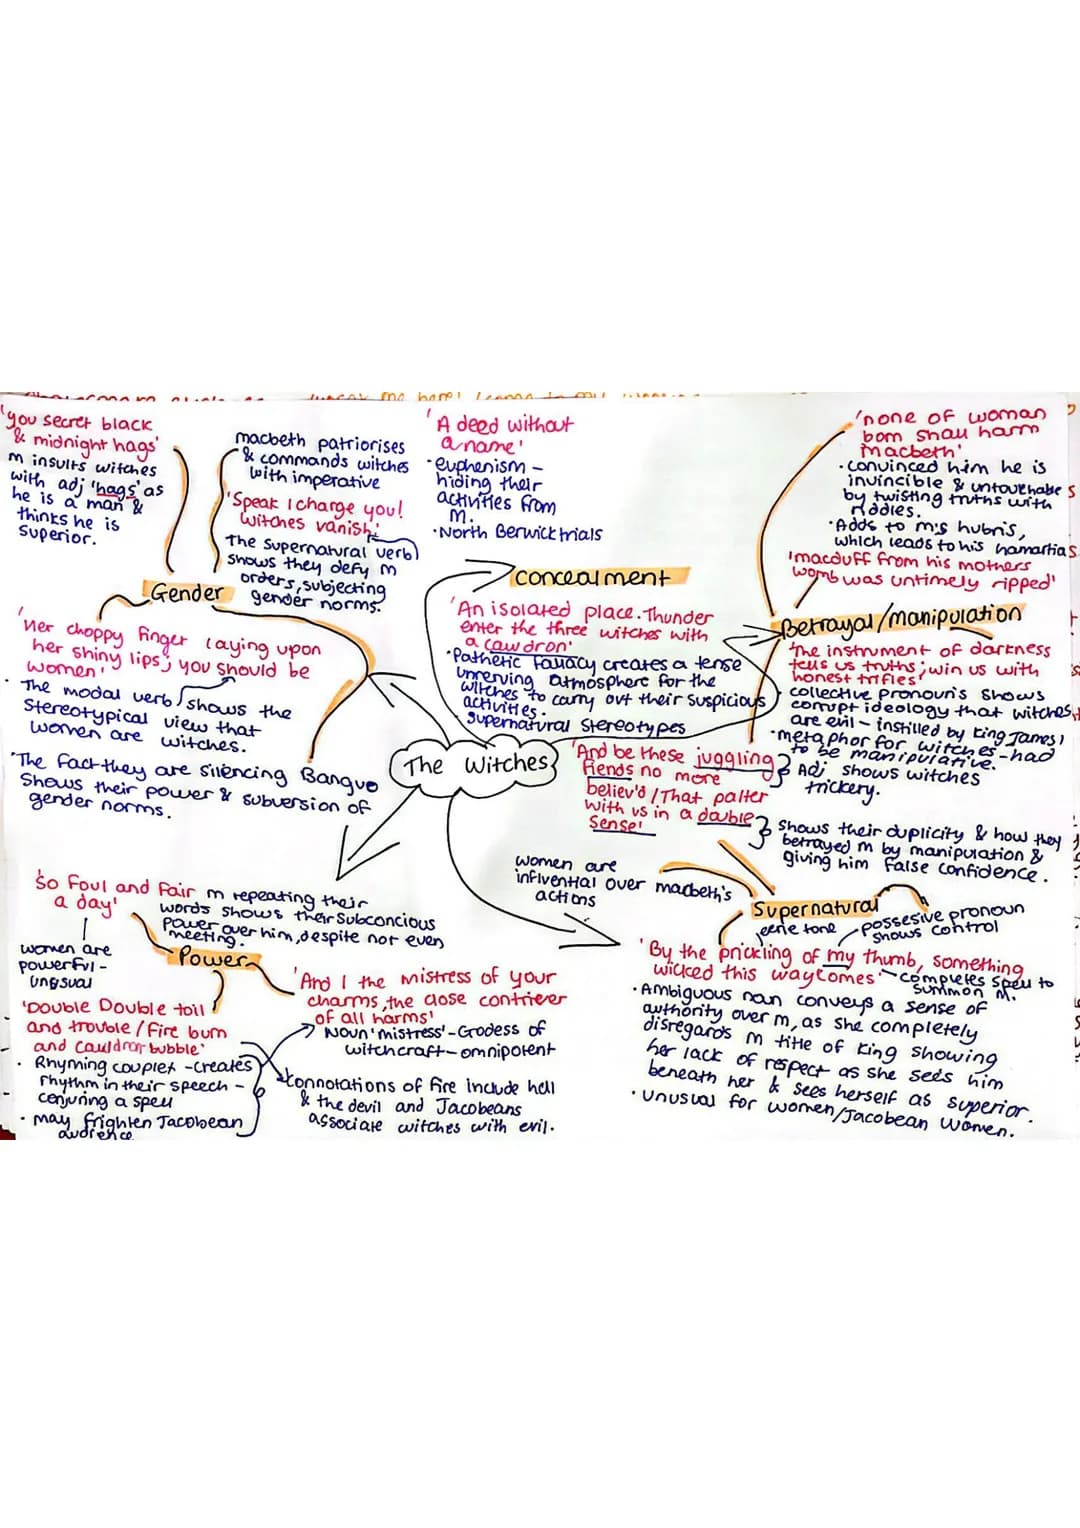 'you secret black
& midnight hags'
M insults witches
with adj 'hags' as
he is a man &
thinks he is
superior.
macbeth patriorises
& commands witches
with imperative
'Speak I charge you!
witches vanish'
The supernatural verb
shows they defy M
orders, subjecting
gender norms.
Gender
'Her choppy finger laying upon
her shiny lips; you should be
women'
· The modal verb shows the
stereotypical view that
women are witches.
·The fact they are silencing Banquo
shows their power & subversion of
gender norms.
'A deed without
a name'
·euphenism -
hiding their
activities from
M.
·North Berwick trials
concealment
'An isolated place. Thunder
enter the three witches with
a cawdron'
·Pathetic fallacy creates a tense
unnerving atmosphere for the
witches to carry out their suspicious
activities.
·supernatural stereotypes
'none of woman
born shall harm
Macbeth'
·convinced him he is
invincible & untouchable
by twisting truths with
riddles.
·Adds to M's hubris,
which leads to his hamartia
'macduff from his mothers
womb was untimely ripped'
Betrayal/manipulation
'the instrument of darkness
tells us truths; win us with
honest trifles'
·collective pronoun is shows
corrupt ideology that witches
are evil - instilled by King James I
·metaphor for witches - had
to be manipulative.
'And be these juggling
fiends no more
believ'd / That palter
with us in a double
sense'
Adj shows witches
trickery.
Shows their duplicity & how they
betrayed M by manipulation &
giving him false confidence.
The Witches
women are
influential over macbeth's
actions
Supernatural
eerie tone
possesive pronoun
shows control
'By the prickling of my thumb, something
wicked this way comes'
completes spell to
summon M.
·Ambiguous noun conveys a sense of
authority over M, as she completely
disregards M title of king showing
her lack of respect as she sees him
beneath her & sees herself as superior.
·unusual for women/Jacobean women.
'So foul and fair
a day'
M repeating their
words shows their subconcious
power over him, despite not even
meeting.
women are
powerful -
unusual
Power
'Double Double toil
and trouble / Fire burn
and cauldron bubble'
· Rhyming couplet - creates
rhythm in their speech -
conjuring a spell
· may frighten Jacobean
audience
'And I the mistress of your
charms, the close contriever
of all harms'
Noun 'mistress' - Grodess of
witchcraft - omnipotent
connotations of fire include hell
& the devil and Jacobeans
associate witches with evil.